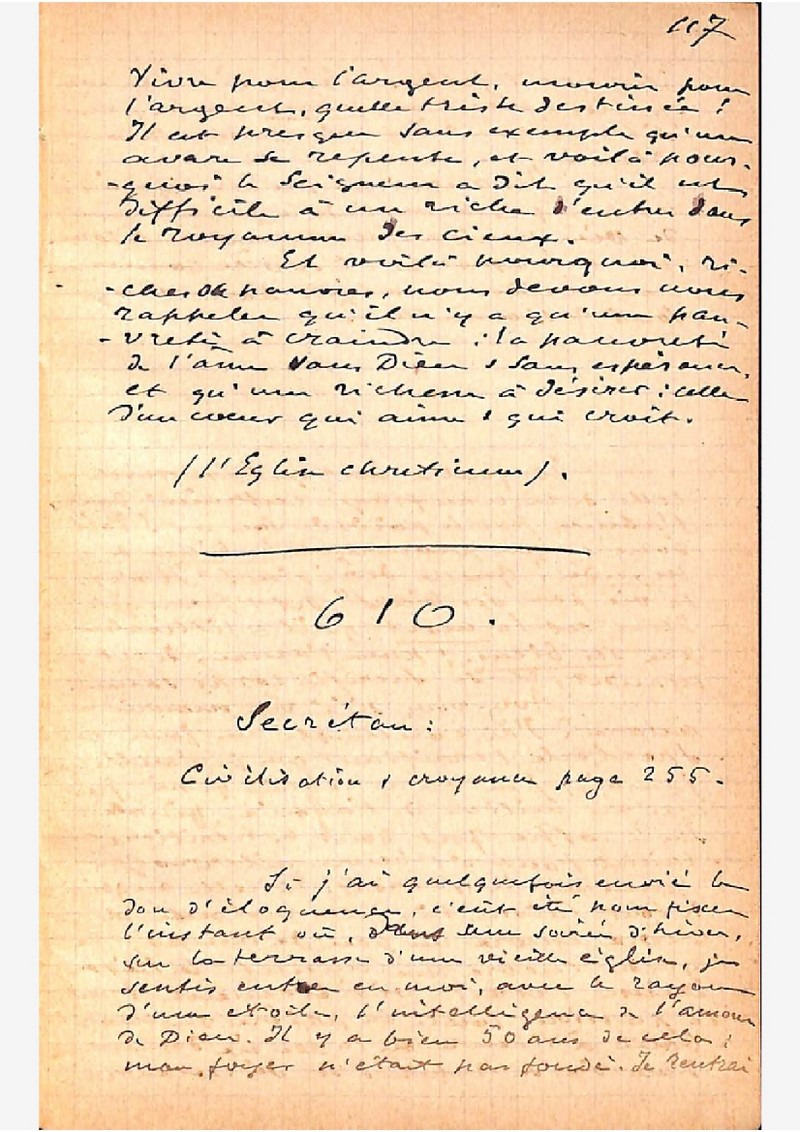 117
Vivre pour l'argent, mourir pour
l'argent, quelle triste destinée !
Il est presque sans exemple qu'un
avare se repente, et voilà pour-
-quoi le Seigneur a dit qu'il est
difficile à un riche d'entrer dans
le royaume des cieux.
Et voilà pourquoi, ri-
-ches ou pauvres, nous devons nous
rappeler qu'il n'y a qu'une pau-
-vreté à craindre : la pauvreté
de l'âme sans Dieu & sans espérance,
et qu'une richesse à désirer : celle
d'un coeur qui aime & qui croit.
(l'Eglise chretienne).
610.
Secrétan :
Civilisation & croyance page 255.
Si j'ai quelquefois envié le
don d'éloquence, c'eût été pour fixer
l'instant où, dans une soirée d'hiver,
sur la terrasse d'une vieille église, je
sentis entrer en moi, avec le rayon
d'une etoile, l'intelligence de l'amour
de Dieu. Il y a bien 50 ans de cela ;
mon foyer n'était pas fondé. Je rentrai